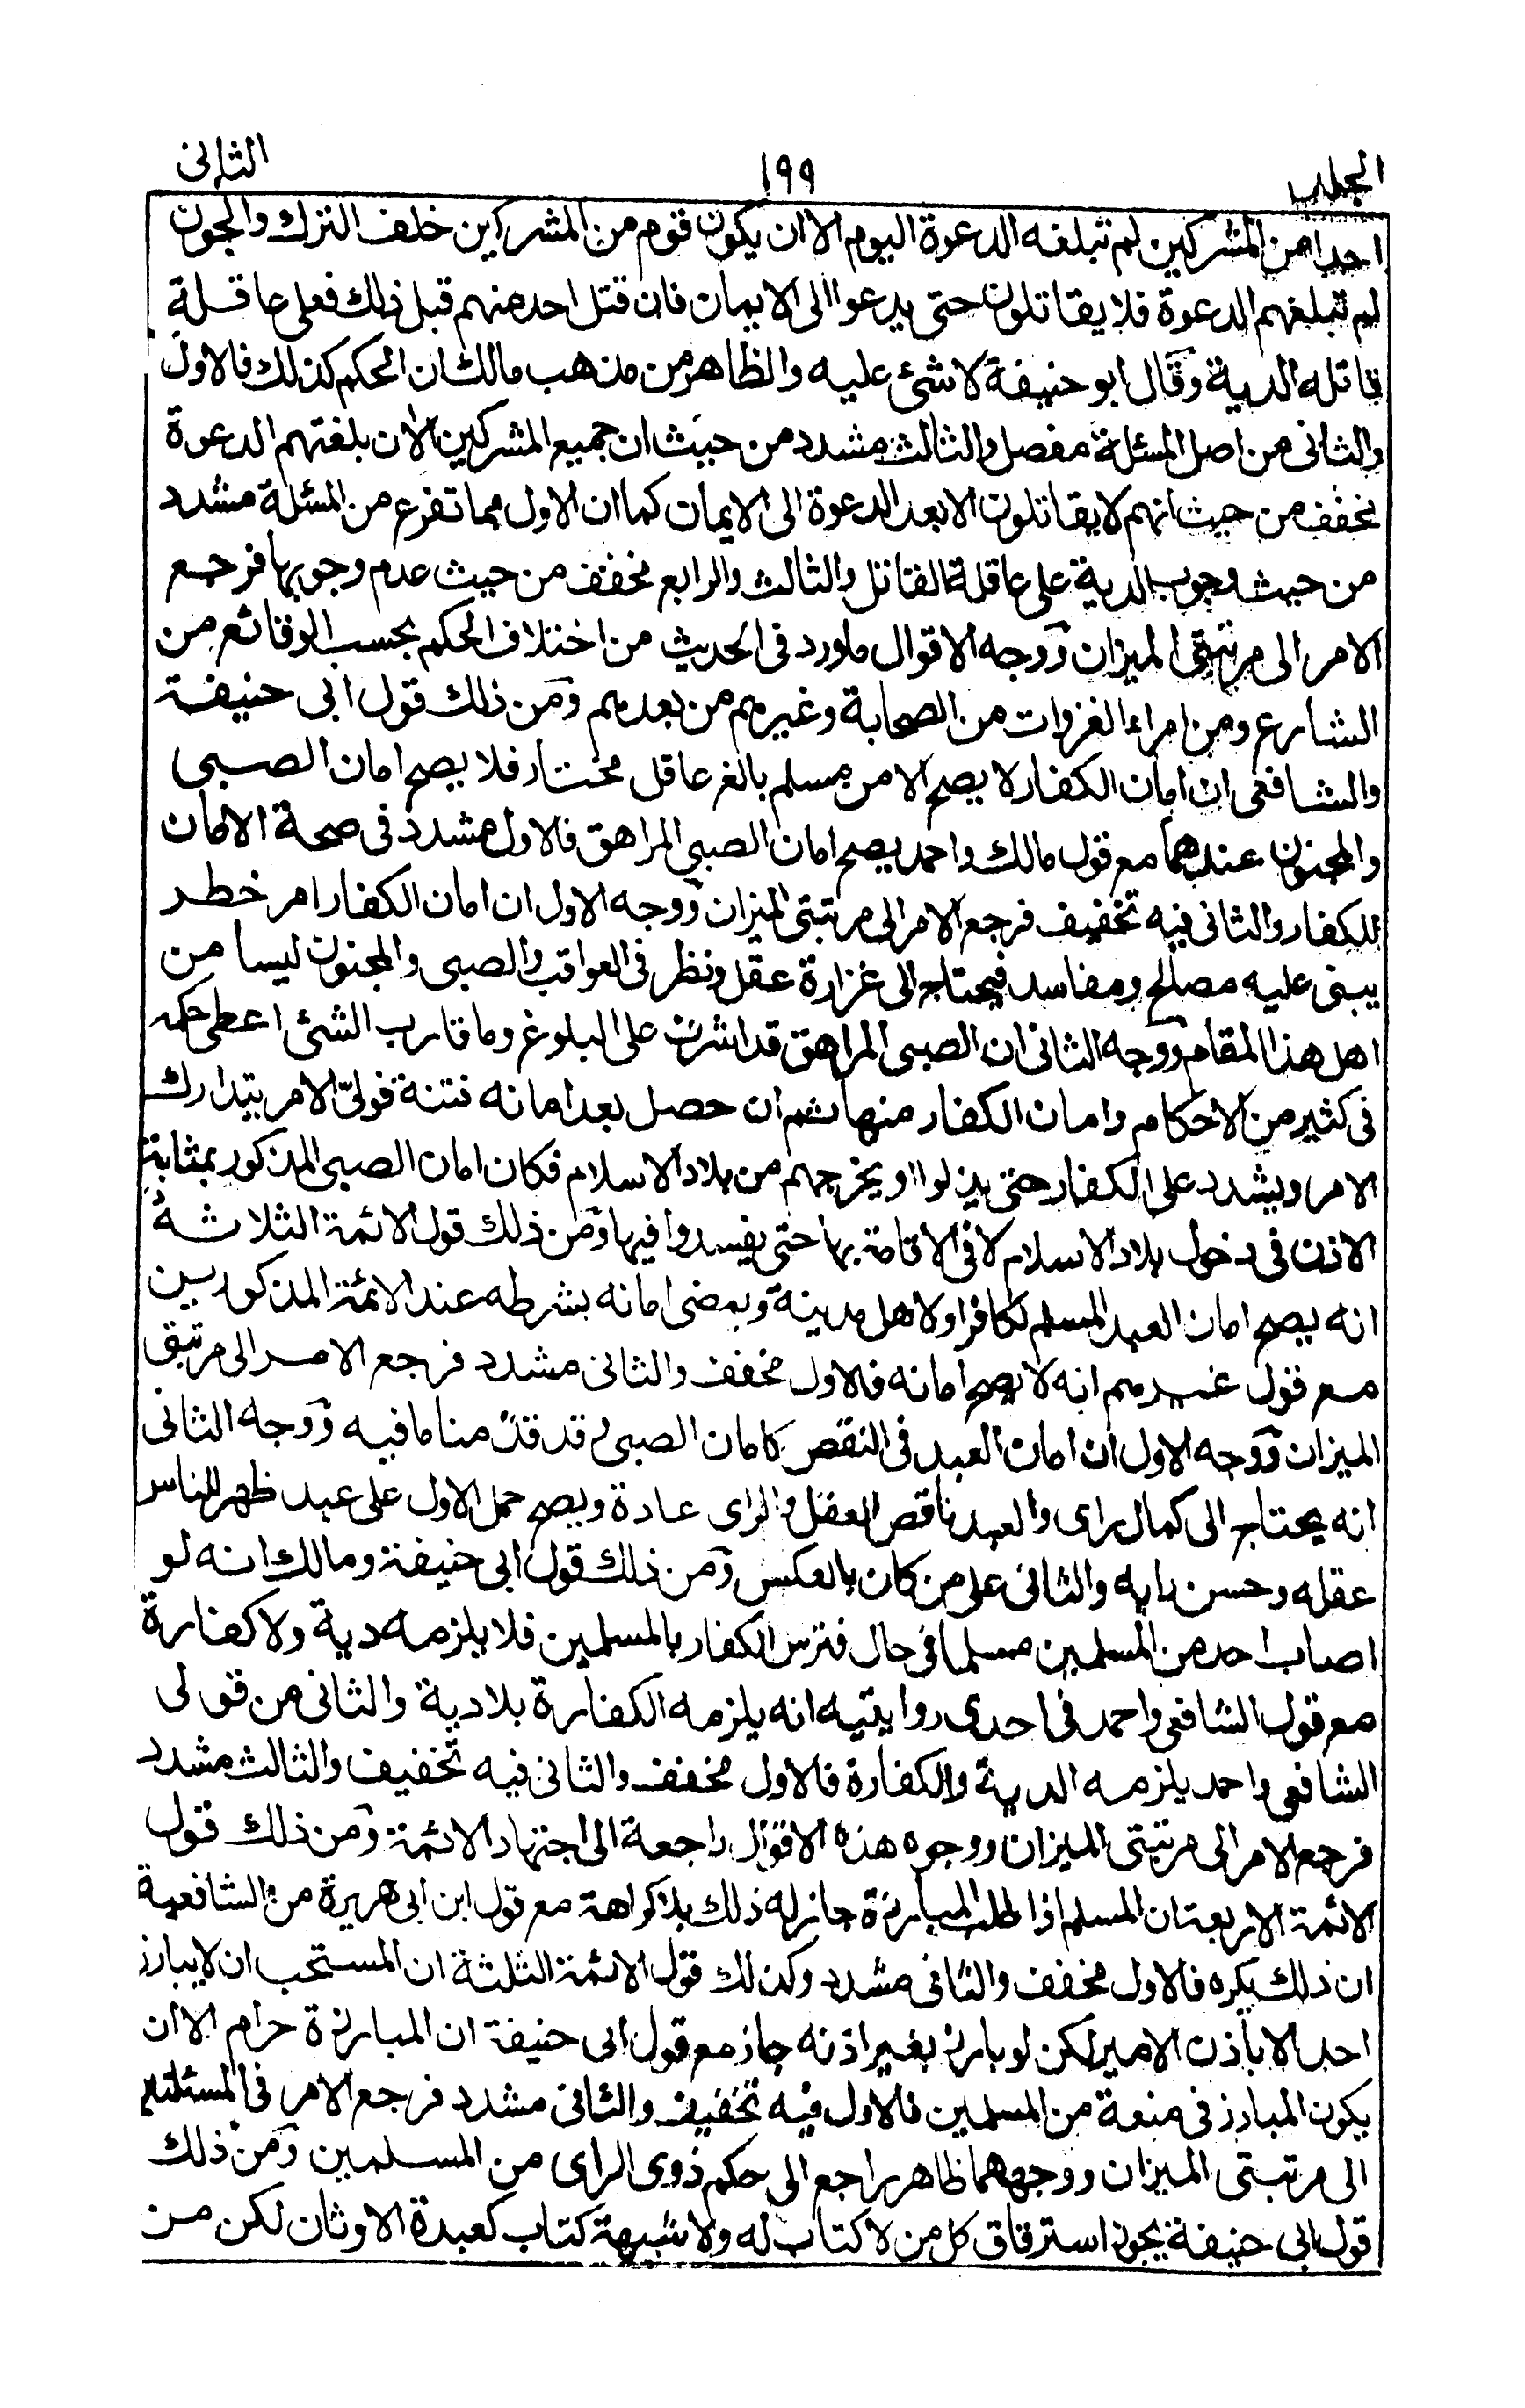 الجلد ١٩٩ الثانى
احدا من المشركين لم تبلغه الدعوة اليوم الا ان يكون قوم من المشركين خلف الترك والجون
لم تبلغهم الدعوة فلا يقاتلون حتى يدعوا الى الايمان فان قتل احد منهم قبل ذلك فعلى عاقلة
قاتله الدية وقال ابو حنيفة لا شئ عليه والظاهر من مذهب مالك ان الحكم كذلك فالاول
والثانى من اصل المسئلة مفصل والثالث مشدد من حيث ان جميع المشركين الان بلغتهم الدعوة
مخفف من حيث انهم لا يقاتلون الا بعد الدعوة الى الايمان كما ان الاول مما تفرع من المسئلة مشدد
من حيث وجوب الدية على عاقلة القاتل والثالث والرابع مخفف من حيث عدم وجوبها فرجع
الامر الى مرتبتى الميزان ووجه الاقوال ما ورد فى الحديث من اختلاف الحكم بحسب الوقائع من
الشارع ومن امراء الغزوات من الصحابة وغيرهم من بعدهم ومن ذلك قول ابى حنيفة
والشافعى ان امان الكفار لا يصح الا من مسلم بالغ عاقل مختار فلا يصح امان الصبى
والمجنون عندهما مع قول مالك واحمد يصح امان الصبى المراهق فالاول مشدد فى صحة الامان
للكفار والثانى فيه تخفيف فرجع الامر الى مرتبتى الميزان ووجه الاول ان امان الكفار امر خطر
يبنى عليه مصالح ومفاسد فيحتاج الى غزارة عقل ونظر فى العواقب والصبى والمجنون ليسا من
اهل هذا المقام ووجه الثانى ان الصبى المراهق قد اشرف على البلوغ وما قارب الشئ اعطى حكمه
فى كثير من الاحكام وامان الكفار منها ثم ان حصل بعد امانه فتنة فولىّ الامر يتدارك
الامر ويشدد على الكفار حتى يذلوا او يخرجهم من بلاد الاسلام فكان امان الصبى المذكور بمثابة
الاذن فى دخول بلاد الاسلام لا فى الاقامة بها حتى يفسدوا فيها ومن ذلك قول الائمة الثلاثة
انه يصح امان العبد المسلم لكافر او لاهل مدينة ويمضى امانه بشرطه عند الائمة المذكورين
مع قول غيرهم انه لا يصح امانه فالاول مخفف والثانى مشدد فرجع الامر الى مرتبتى
الميزان ووجه الاول ان امان العبد فى النقص كامان الصبى وقد قدّمنا ما فيه ووجه الثانى
انه يحتاج الى كمال راى والعبد ناقص العقل والراى عادة ويصح حمل الاول على عبد ظهر للناس
عقله وحسن رايه والثانى على من كان بالعكس ومن ذلك قول ابى حنيفة ومالك انه لو
اصاب احد من المسلمين مسلما فى حال فترس الكفار بالمسلمين فلا يلزمه دية ولا كفارة
مع قول الشافعى واحمد فى احدى روايتيه انه يلزمه الكفارة بلا دية والثانى من قولى
الشافعى واحمد يلزمه الدية والكفارة فالاول مخفف والثانى فيه تخفيف والثالث مشدد
فرجع الامر الى مرتبتى الميزان ووجوه هذه الاقوال راجعة الى اجتهاد الائمة ومن ذلك قول
الائمة الاربعة ان المسلم اذا طلب المبارزة جاز له ذلك بلا كراهة مع قول ابن ابى هريرة من الشافعية
ان ذلك يكره فالاول مخفف والثانى مشدد وكذلك قول الائمة الثلثة ان المستحب ان لا يبارز
احد الا باذن الامير لكن لو بارز بغير اذنه جاز مع قول ابى حنيفة ان المبارزة حرام الا ان
يكون المبارز فى منعة من المسلمين فالاول فيه تخفيف والثانى مشدد فرجع الامر فى المسئلتين
الى مرتبتى الميزان ووجههما ظاهر راجع الى حكم ذوى الراى من المسلمين ومن ذلك
قول ابى حنيفة يجوز استرقاق كل من لا كتاب له ولا شبهة كتاب كعبدة الاوثان لكن من